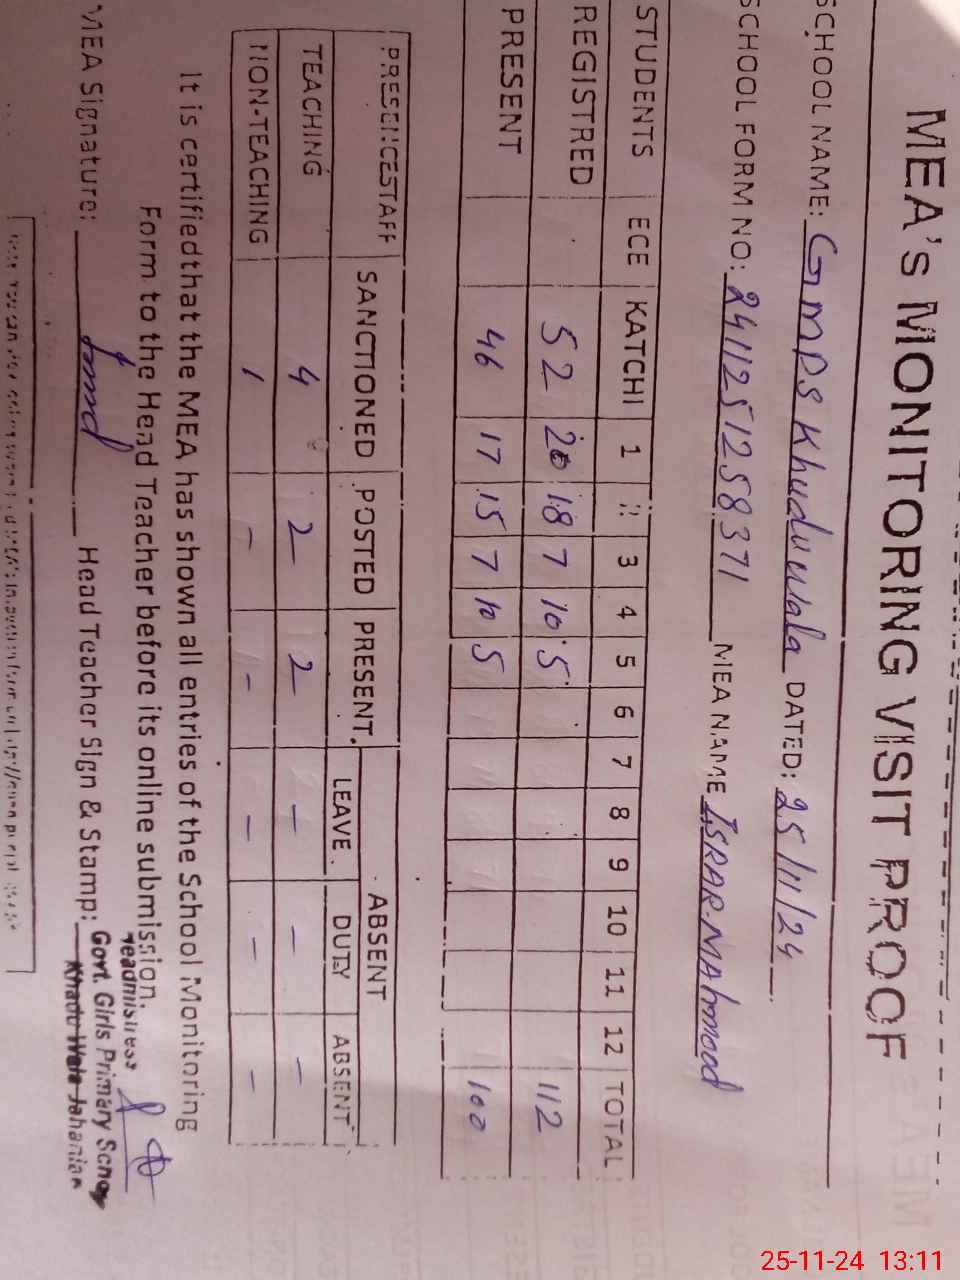 MEA's MONITORING VISIT PROOF
SCHOOL NAME: GMPS Khuduwala DATED: 25/11/24
SCHOOL FORM NO: 2411251258371 MEA NAME ISRAR MAhmood
STUDENTS ECE KATCHI 1 2 3 4 5 6 7 8 9 10 11 12 TOTAL
REGISTRED 52 20 18 7 10 5 112
PRESENT 46 17 15 7 10 5 100
PRESENCESTAFF SANCTIONED POSTED PRESENT ABSENT
LEAVE DUTY ABSENT
TEACHING 4 2 2 - - -
NON-TEACHING 1 - - - - -
It is certified that the MEA has shown all entries of the School Monitoring
Form to the Head Teacher before its online submission.
MEA Signature: Head Teacher Sign & Stamp:
Headmistress
Govt. Girls Primary School
Khadu Wala Jahanian
25-11-24 13:11